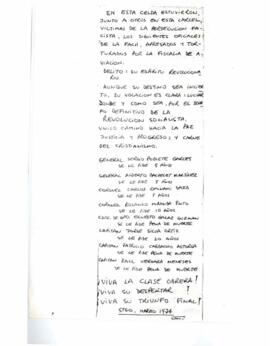 EN ESTA CELDA ESTUVIERON,
JUNTO A OTROS EN ESTA CARCEL,
VICTIMAS DE LA PERSECUCION FA-
CISTA, LOS SIGUIENTES OFICIALES
DE LA FACH, APRESADOS Y TOR-
TURADOS POR LA FISCALIA DE A-
VIACION.
DELITO: SU ESPIRITU REVOLUCIONA
RIO
AUNQUE SU DESTINO SEA INCIER
TO, SU VOCACION ES CLARA: LUCHAR
DONDE Y COMO SEA, POR EL
DEFINITIVO DE LA
REVOLUCION SOCIALISTA,
UNICO CAMINO HACIA LA PAZ
JUSTICIA Y PROGRESO; Y
DEL CRISTIANISMO.
GENERAL SERGIO POBLETE GARCES
SE LE PIDE 5 AÑOS
GENERAL ALBERTO BACHELET MARTINEZ
SE LE PIDE AÑOS
CORONEL CARLOS OMINAMI DAZA
SE LE PIDE AÑOS
CORONEL ROLANDO MIRANDA PINTO
SE LE PIDE 10 AÑOS
ERNESTO GALAZ GUZMAN
SE LE PIDE PENA DE MUERTE
CAPITAN JORGE SILVA ORTIZ
SE LE PIDE 20 AÑOS
CAPITAN PATRICIO CARBACHO ASTORGA
SE LE PIDE PENA DE MUERTE
CAPITAN RAUL VERGARA MENESES
SE LE PIDE PENA DE MUERTE
¡VIVA LA CLASE OBRERA!
¡VIVA SU DESPERTAR!
¡VIVA SU TRIUNFO FINAL!
STGO, MARZO 1974